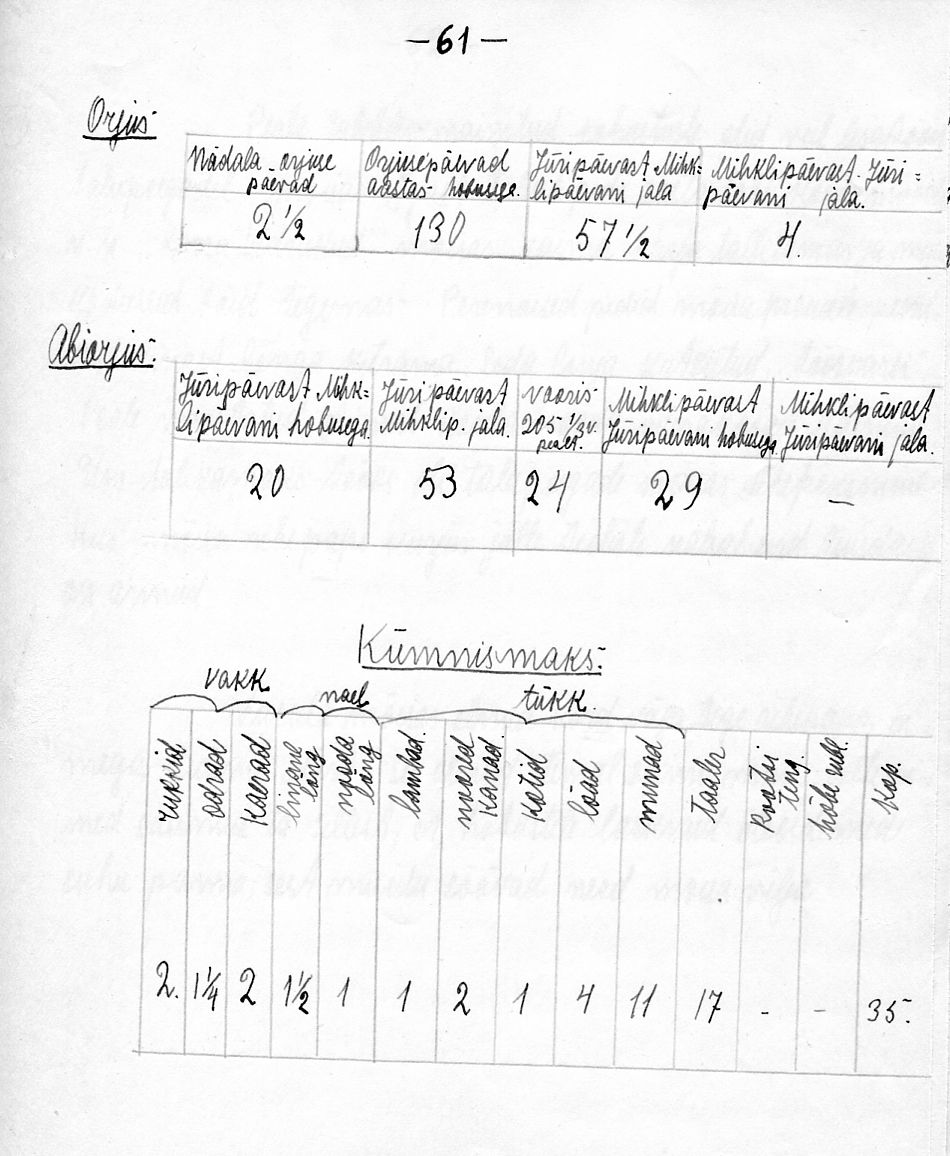 —61—
Orjus:
Nädala-orjuse päevad
Orjusepäevad aastas hobusega.
Jüripäevast Mihk=lipäevani jala
Mihklipäevast Jüri=päevani jala.
2 1/2
130
57 1/2
4.
Abiorjus:
Jüripäevast Mihk=lipäevani hobusega.
Jüripäevast Mihklip. jala.
vooris 205 1/3 v. pealt.
Mihklipäevast Jüripäevani hobusega
Mihklipäevast Jüripäevani jala.
20
53
24
29
—
Kümnismaks:
vakk
nael
tükk.
rukkid
odrad
kaerad
linane lõng
lambad.
kanad.
kotid
munad
taaler
kop.
2. 1 1/4 2 1 1/2 1 1 2 1 4 11 17 - - 35.